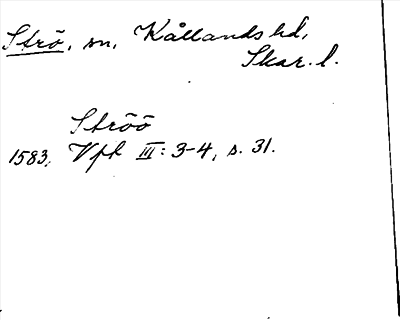 Strö, sn, Kållands hd,
Skar. l.
Ströö
1583, Vfk III: 3-4, s. 31.